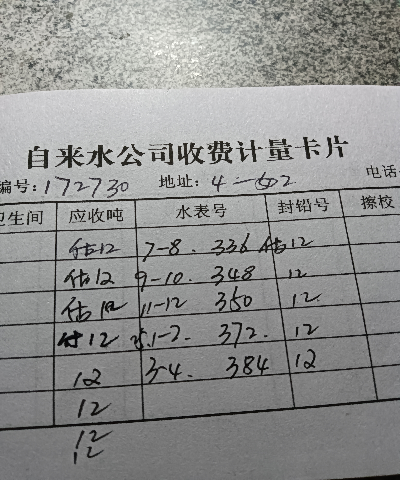 自来水公司收费计量卡片
编号:172730 地址: 4-602 电话
卫生间 应收吨 水表号 封铅号 擦校
估12 7-8. 336 估12
估12 9-10. 348 12
估12 11-12 360 12
估12 1-2. 372. 12
12 3-4. 384 12
12
12
12